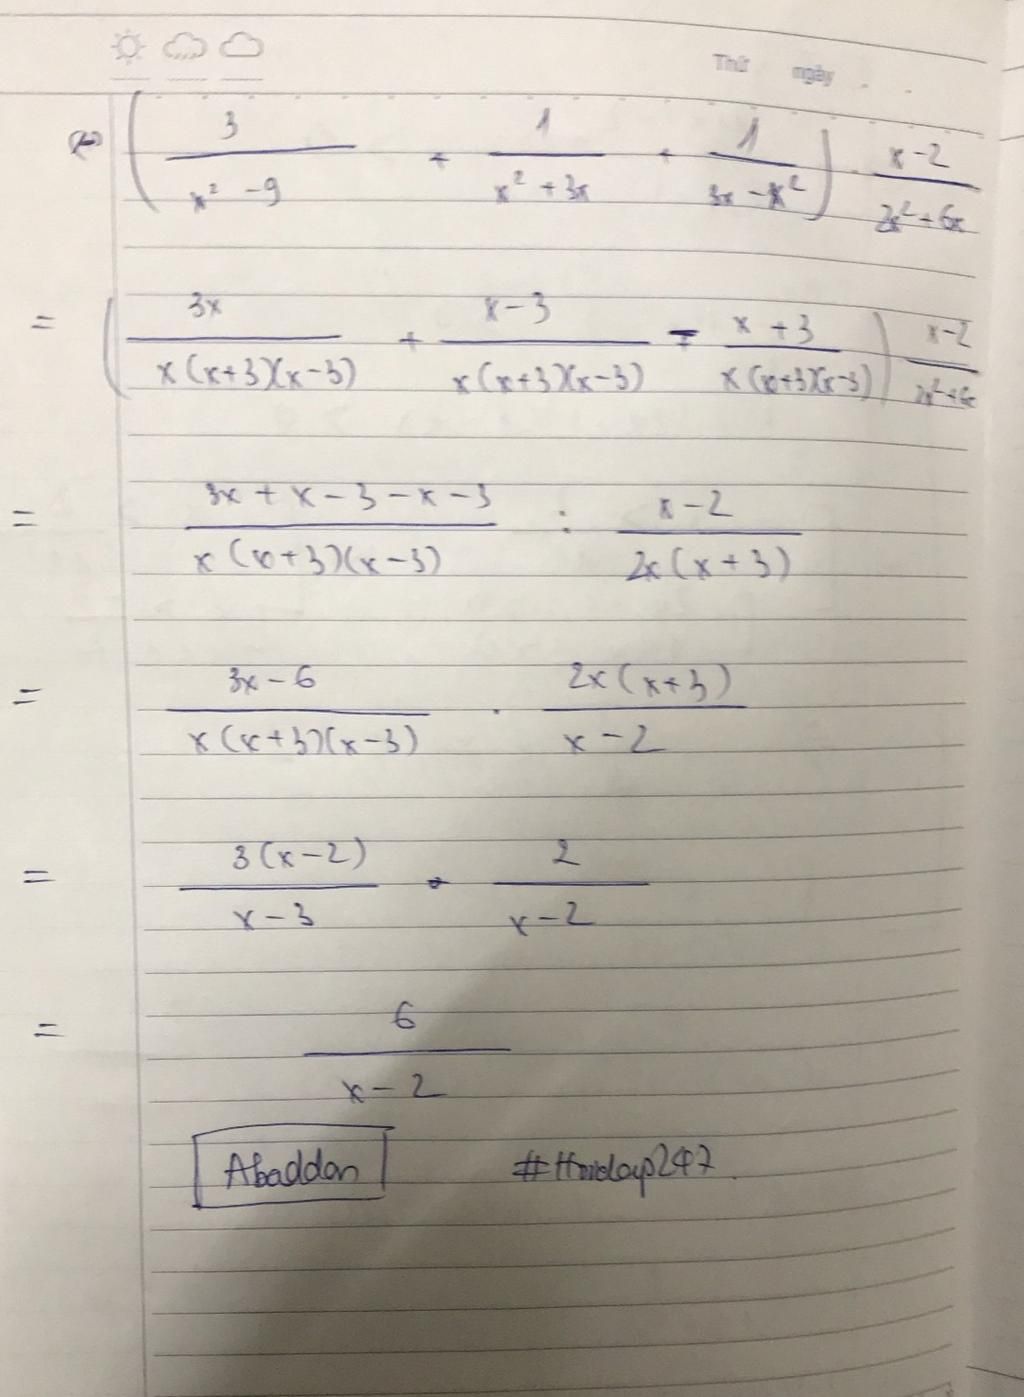 Thứ ngày
( 3/(x² - 9) + 1/(x² + 3x) + 1/(3x - x²) ) . (x - 2)/(2x² + 6x)
= ( 3x/(x(x+3)(x-3)) + (x-3)/(x(x+3)(x-3)) - (x+3)/(x(x+3)(x-3)) ) (x-2)/(2x²+6x)
= (3x + x - 3 - x - 3)/(x(x+3)(x-3)) : (x-2)/(2x(x+3))
= (3x - 6)/(x(x+3)(x-3)) . (2x(x+3))/(x-2)
= (3(x-2))/(x-3) . 2/(x-2)
= 6/(x-2)
Abaddon #Hoidap247